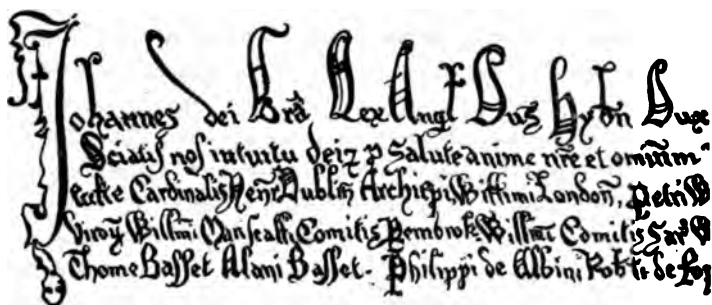 Johannes dei Grã Rex Angl Dus hybn Dux
Sciatis nos intuitu dei ꝫ p Salute anime nr̃e et omniũm
eccłe Cardinalis Henr̃ Dublin̄ Archiepi, Willimi London̄, Petri W
Willm̄i Marscałł, Comitis Pembrok. Willm̄i Comitis Sar' W
Thome Basset Alani Basset. Philippi de Albini Rob̄ti de Rop